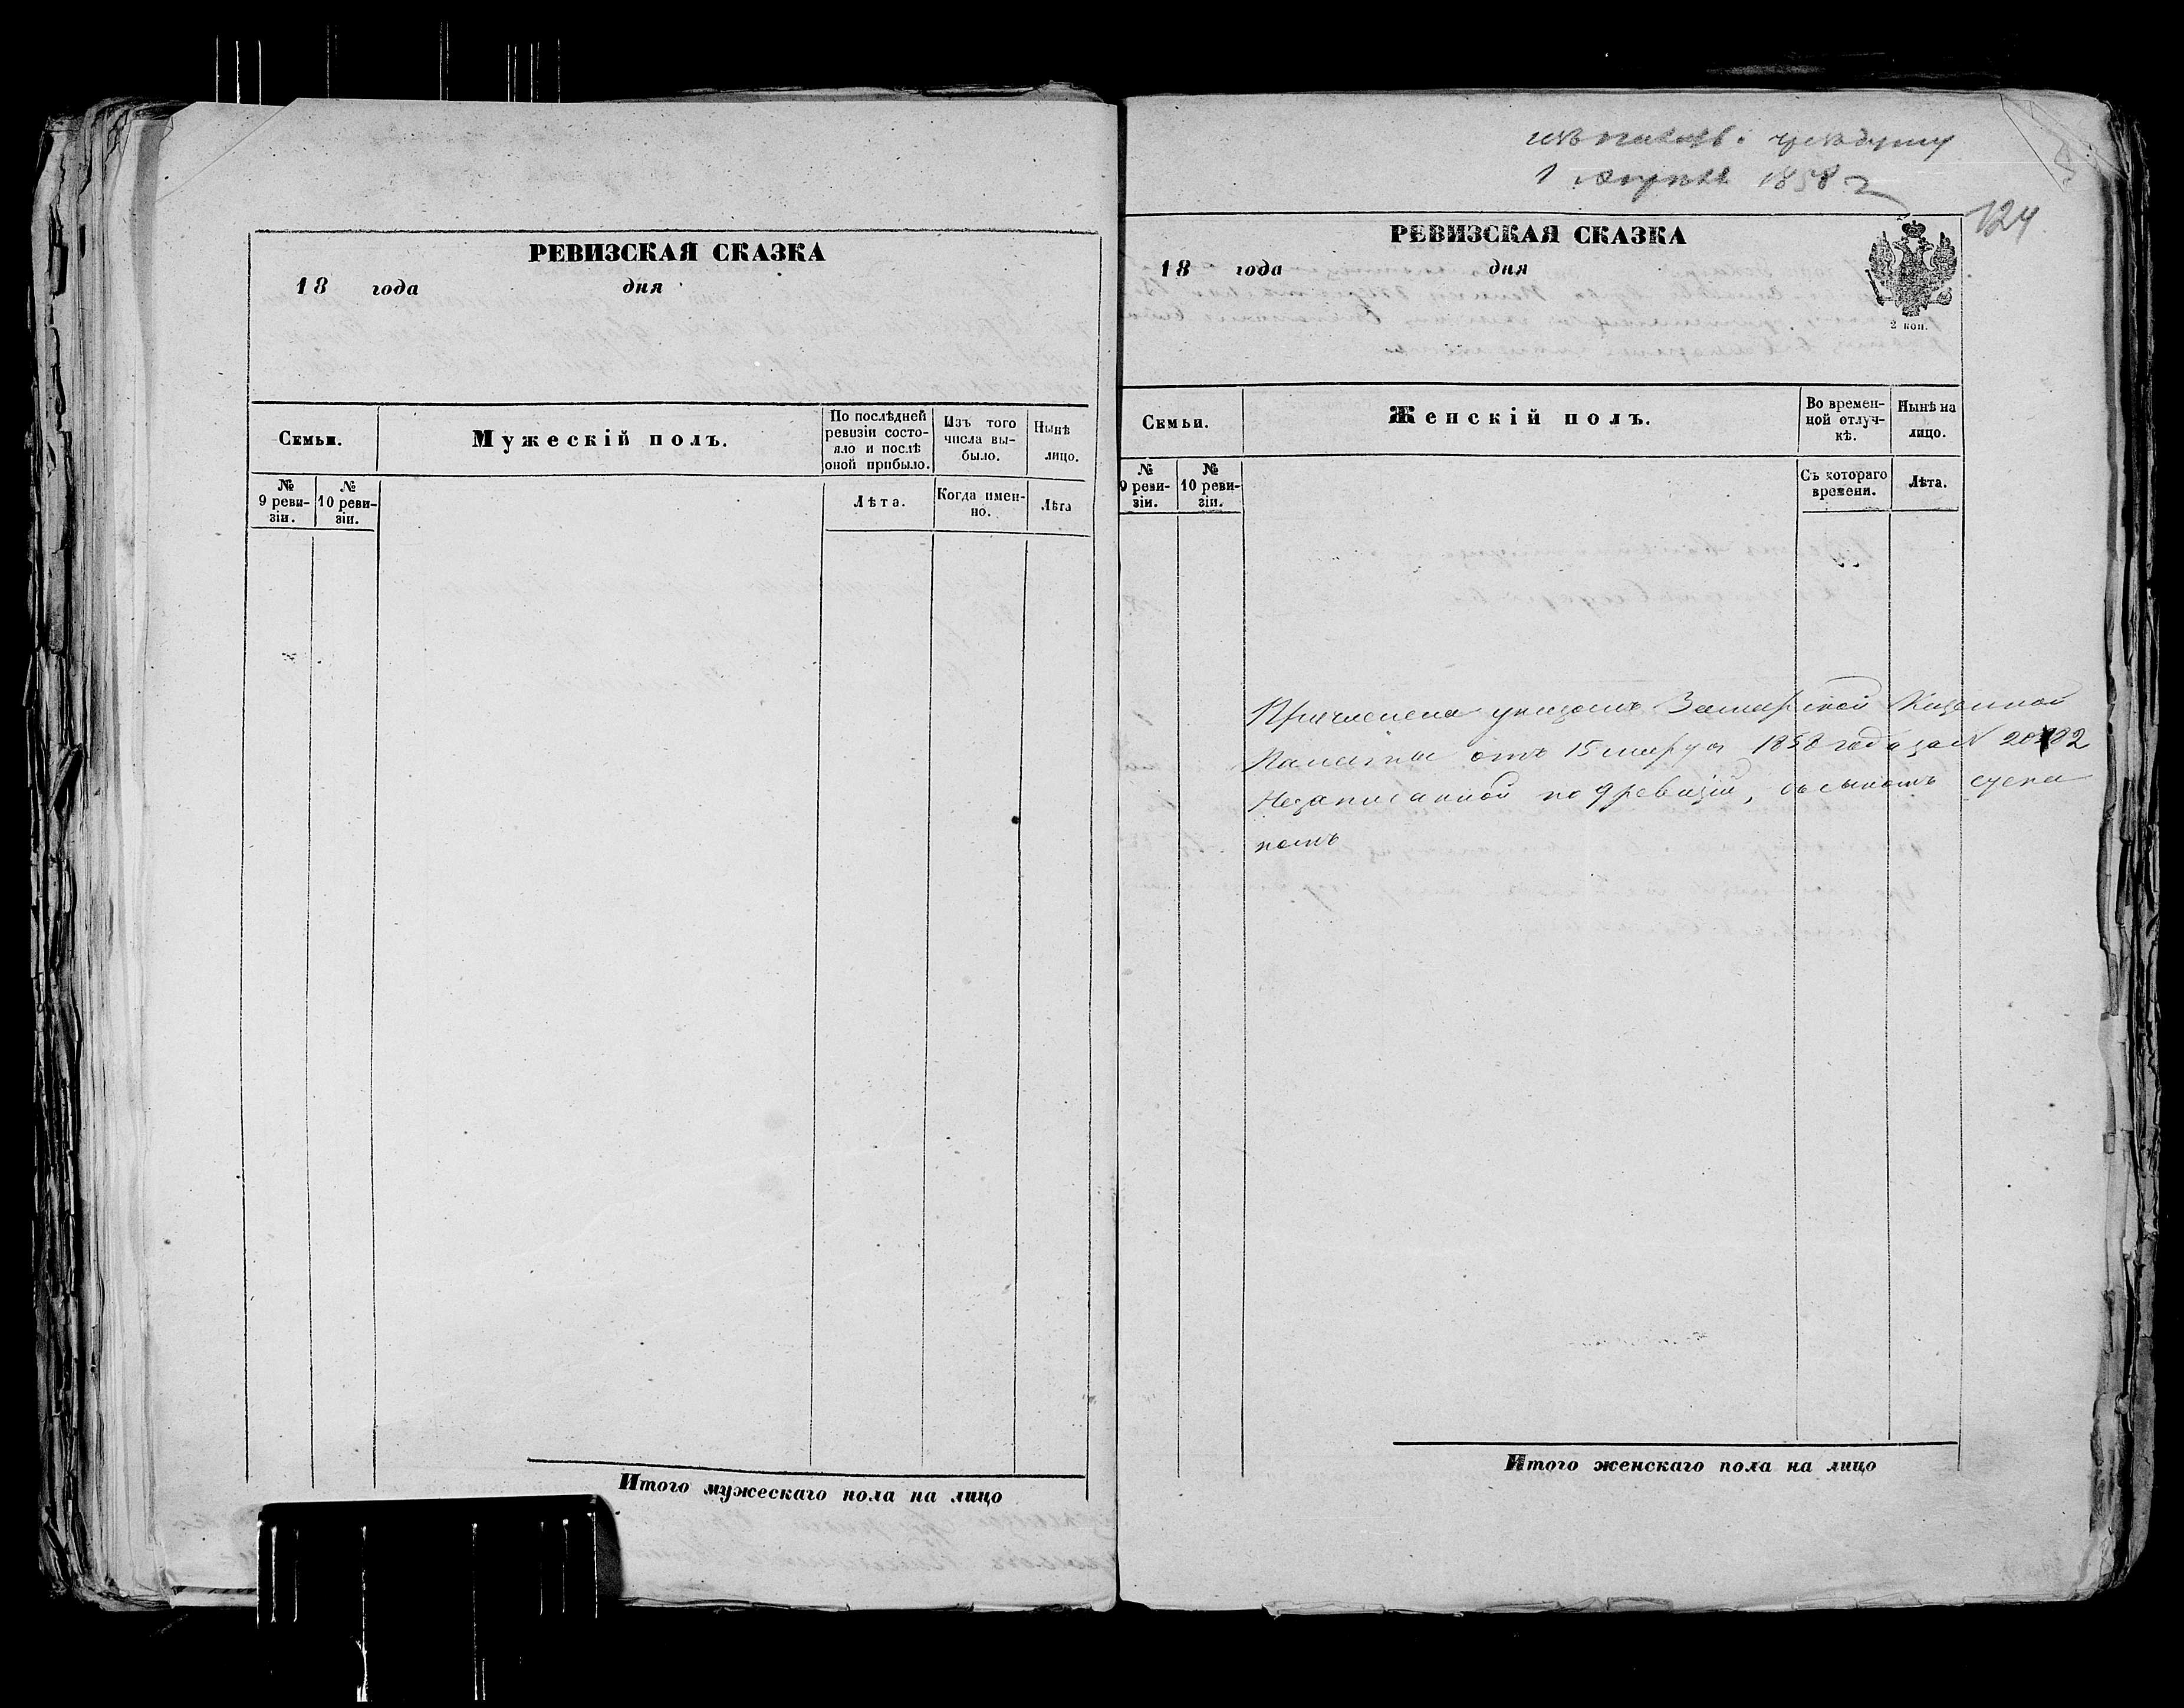 РЕВИЗСКАЯ СКАЗКА
18 года дня
Семьи.
Мужескій полъ.
По послѣдней
ревизіи состо-
яло и послѣ
оной прибыло.
Изъ того
числа вы-
было.
Нынѣ
лицо.
№
9 реви-
зіи.
№
10 реви-
зіи.
Лѣта.
Когда имен-
но.
Лѣта
Итого мужескаго пола на лицо
1 1858 г
124
РЕВИЗСКАЯ СКАЗКА
18 года дня
2 коп.
Семьи.
Женскій полъ.
Во времен-
ной отлуч-
кѣ.
Нынѣ на
лицо.
№
9 реви-
зіи.
№
10 реви-
зіи.
Съ котораго
времени.
Лѣта.
Причислена указомъ Казенной
Палаты отъ 15 марта 1858 года за №
Незаписанной по 9 ревизіи, съ сыномъ
Итого женскаго пола на лицо